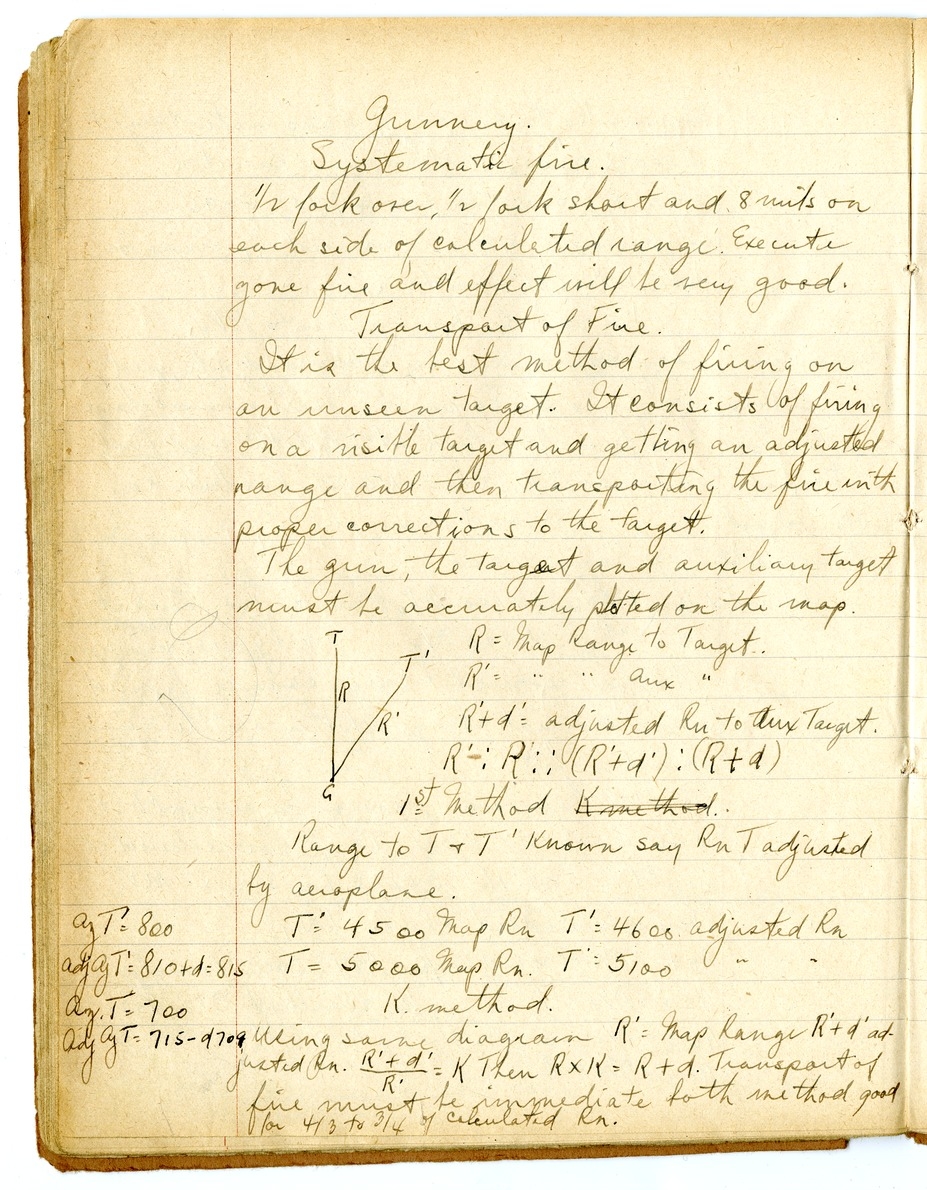 Gunnery.
Systematic fire.
1/2 fork over, 1/2 fork short and 8 mils on
each side of calculated range. Execute
zone fire and effect will be very good.
Transport of Fire.
It is the best method of firing on
an unseen target. It consists of firing
on a visible target and getting an adjusted
range and then transporting the fire with
proper corrections to the target.
The gun, the target and auxiliary target
must be accurately plotted on the map.
T
T'
R
R'
G
R = Map Range to Target.
R' = " " Aux "
R'+d' = adjusted Rn to Aux Target.
R' : R :: (R'+d') : (R+d)
1st Method K method.
Range to T & T' Known say Rn T adjusted
by aeroplane.
Az T' = 800
T' = 4500 Map Rn T' = 4600 adjusted Rn
adj Az T' = 810+d=815
T = 5000 Map Rn. T = 5100 " "
Az. T = 700
K. method.
Adj Az T = 715-d 709
Using same diagram R' = Map Range R'+d' ad-
justed Rn. R'+d'/R' = K Then R x K = R+d. Transport of
fire must be immediate both method good
for 4/3 to 3/4 of calculated Rn.